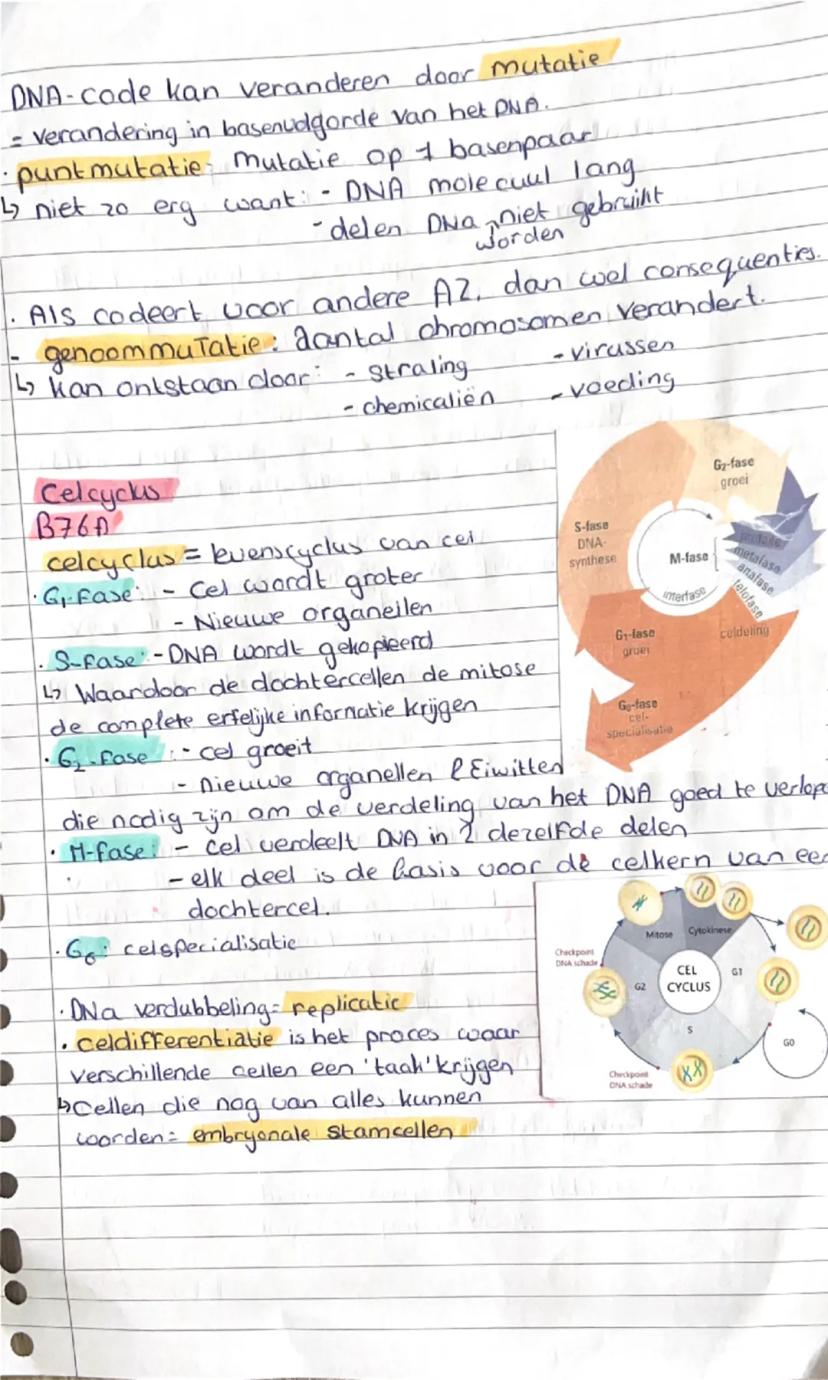 DNA-code kan veranderen door mutatie
= verandering in basenvolgorde van het DNA.
· puntmutatie: mutatie op 1 basenpaar
↳ niet zo erg want: - DNA molecuul lang
- delen DNA niet gebruikt
worden
· Als codeert voor andere AZ, dan wel consequenties.
- genoommutatie: aantal chromosomen verandert.
↳ kan ontstaan door: - straling - virussen
- chemicaliën - voeding
Celcyclus
B76A
celcyclus = levenscyclus van cel
· G1-fase: - Cel wordt groter
- Nieuwe organellen
· S-fase: - DNA wordt gekopieerd
↳ Waardoor de dochtercellen de mitose
de complete erfelijke informatie krijgen
· G2-fase: - cel groeit
- nieuwe organellen & Eiwitten
die nodig zijn om de verdeling van het DNA goed te verlope
· M-fase: - cel verdeelt DNA in 2 dezelfde delen
- elk deel is de basis voor de celkern van een
dochtercel.
· G0: celspecialisatie
· DNA verdubbeling = replicatie
· celdifferentiatie is het proces waar
verschillende cellen een 'taak' krijgen
↳ Cellen die nog van alles kunnen
worden = embryonale stamcellen
G2-fase
groei
S-fase
DNA-
synthese
M-fase
profase
metafase
anafase
telofase
interfase
G1-fase
groei
celdeling
G0-fase
cel-
specialisatie
Mitose
Cytokinese
Checkpoint
DNA schade
CEL
CYCLUS
G1
G2
S
G0
Checkpoint
DNA schade